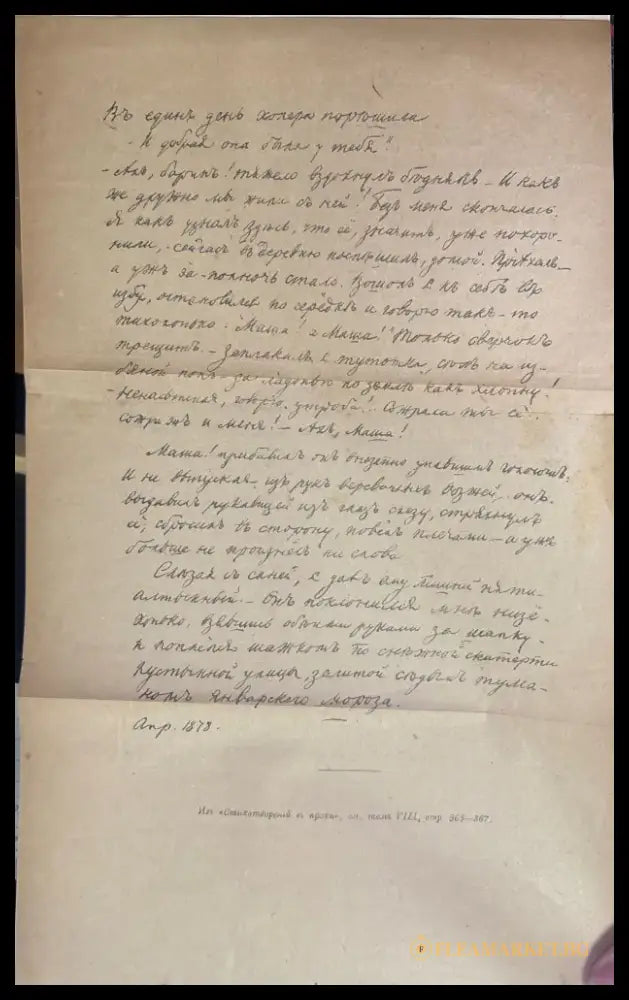 Въ единъ день холера порѣшила
- И добрая она была у тебя?"
- Ахъ, баринъ! тяжело вздохнулъ бѣднякъ - И какъ
же дружно мы жили съ ней! Безъ меня скончалась.
Я какъ узналъ здѣсь, что её, значитъ, уже похоро-
нили, - сейчасъ въ деревню поспѣшилъ, домой. Пріѣхалъ -
а ужъ за-полночь стало. Вошолъ я къ себѣ въ
избу, остановился по серединѣ и говорю такъ-то
тихохонько: "Маша! а Маша!" Только сверчокъ
трещитъ. - Заплакалъ я тутотка, сѣлъ на из-
бяной полъ - да ладонью по землѣ какъ хлопну!
- Ненасытная, говорю, утроба!.. Сожрала ты её..
сожри жъ и меня! - Ахъ, Маша!
Маша! прибавилъ онъ внезапно упавшимъ голосомъ.
И не выпуская изъ рукъ веревочныхъ возжей, онъ
выдавилъ рукавицей изъ глазъ слезу, стряхнулъ
её, сбросилъ въ сторону, повёлъ плечами - и ужъ
больше не произнёсъ ни слова
Слѣзая съ саней, я далъ ему лишній пяти-
алтынный. - Онъ поклонился мнѣ низё-
хонько, взявшись обѣими руками за шапку -
и поплёлся шажкомъ по снѣжной скатерти
пустынной улицы, залитой сѣдымъ тума-
номъ январскаго мороза.
Апр. 1878.
Из «Стихотворений в прозе», см. томъ VIII, стр. 365—367.